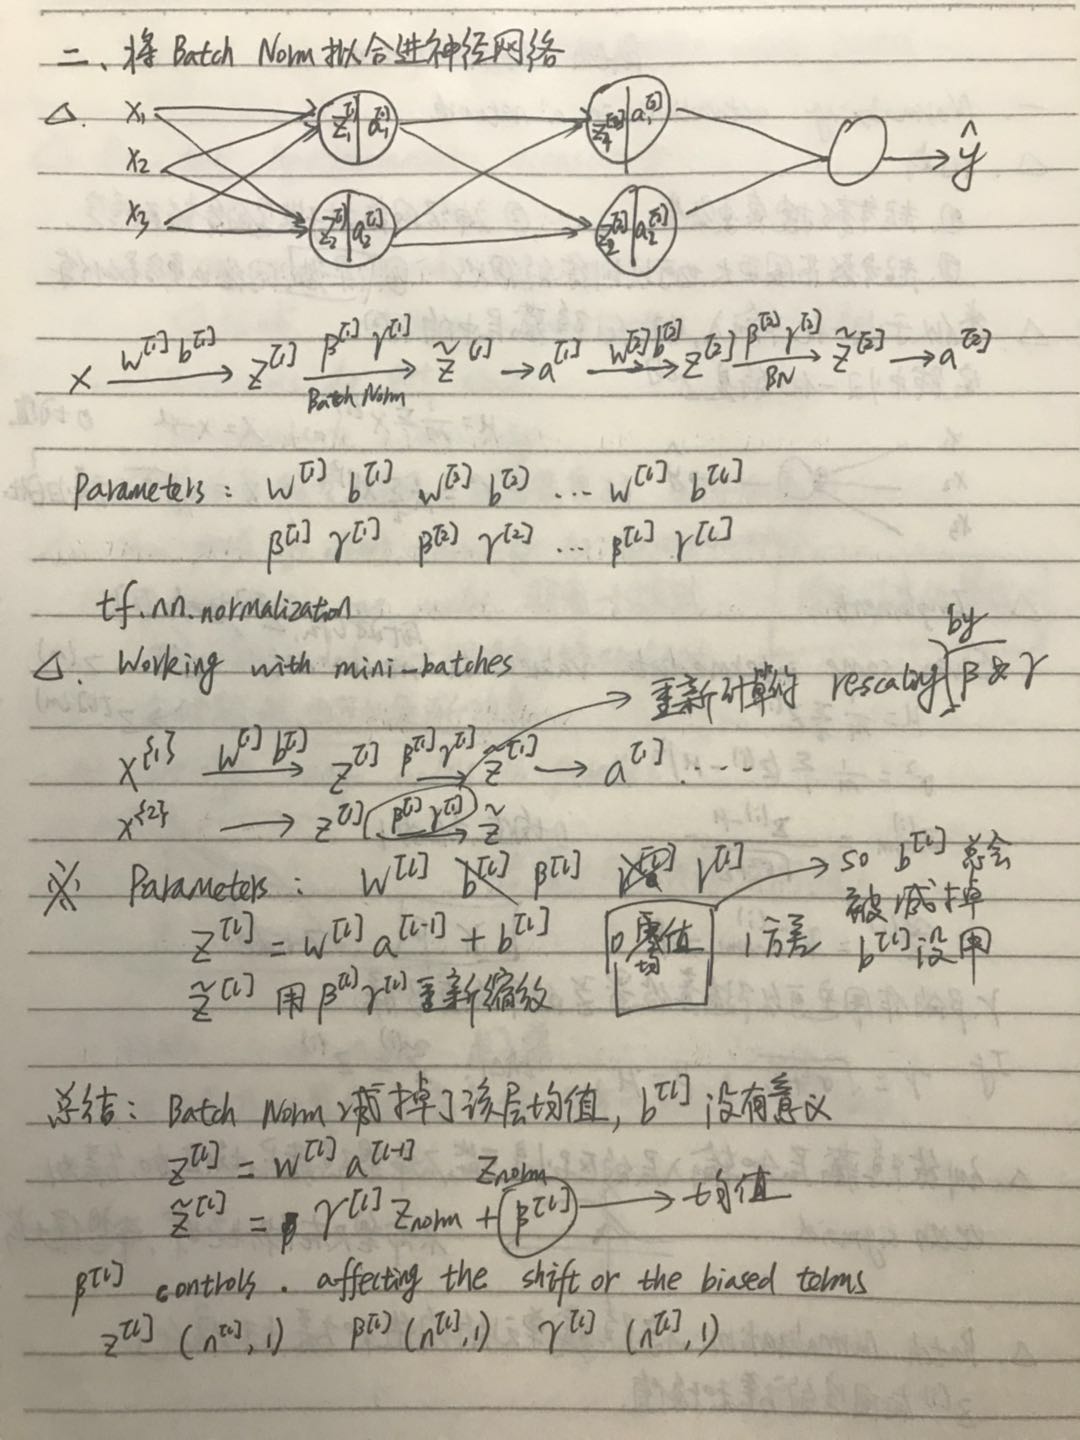 二、将 Batch Norm 拟合进神经网络
△. x₁ z₁^[1] a₁^[1] a₁^[2]
x₂ ŷ
x₃ z₂^[1] a₂^[1] z₂^[2] a₂^[2]
X —W^[1] b^[1]→ Z^[1] —β^[1] γ^[1] / Batch Norm→ Z̃^[1] → a^[1] —W^[2] b^[2]→ Z^[2] —β^[2] γ^[2] / BN→ Z̃^[2] → a^[2]
Parameters: W^[1] b^[1] W^[2] b^[2] ... W^[L] b^[L]
β^[1] γ^[1] β^[2] γ^[2] ... β^[L] γ^[L]
tf.nn.normalization
△. Working with mini-batches
→ 重新计算的 rescaling by β & γ
X^{1} —W^[1] b^[1]→ Z^[1] —β^[1] γ^[1]→ Z̃^[1] → a^[1] ....
X^{2} → Z^[1] —β^[1] γ^[1]→ Z̃
※ Parameters: W^[l] b^[l] β^[l] γ^[l] → so b^[l] 总会
被减掉
b^[l] 没用
Z^[l] = W^[l] a^[l-1] + b^[l] 0 均值 1 方差
Z̃^[l] 用 β^[l] γ^[l] 重新缩放
总结: Batch Norm 减掉了该层均值, b^[l] 没有意义
Z^[l] = W^[l] a^[l-1] Znorm
Z̃^[l] = γ^[l] Znorm + β^[l] → 均值
β^[l] controls. affecting the shift or the biased terms
Z^[l] (n^[l], 1) β^[l] (n^[l], 1) γ^[l] (n^[l], 1)